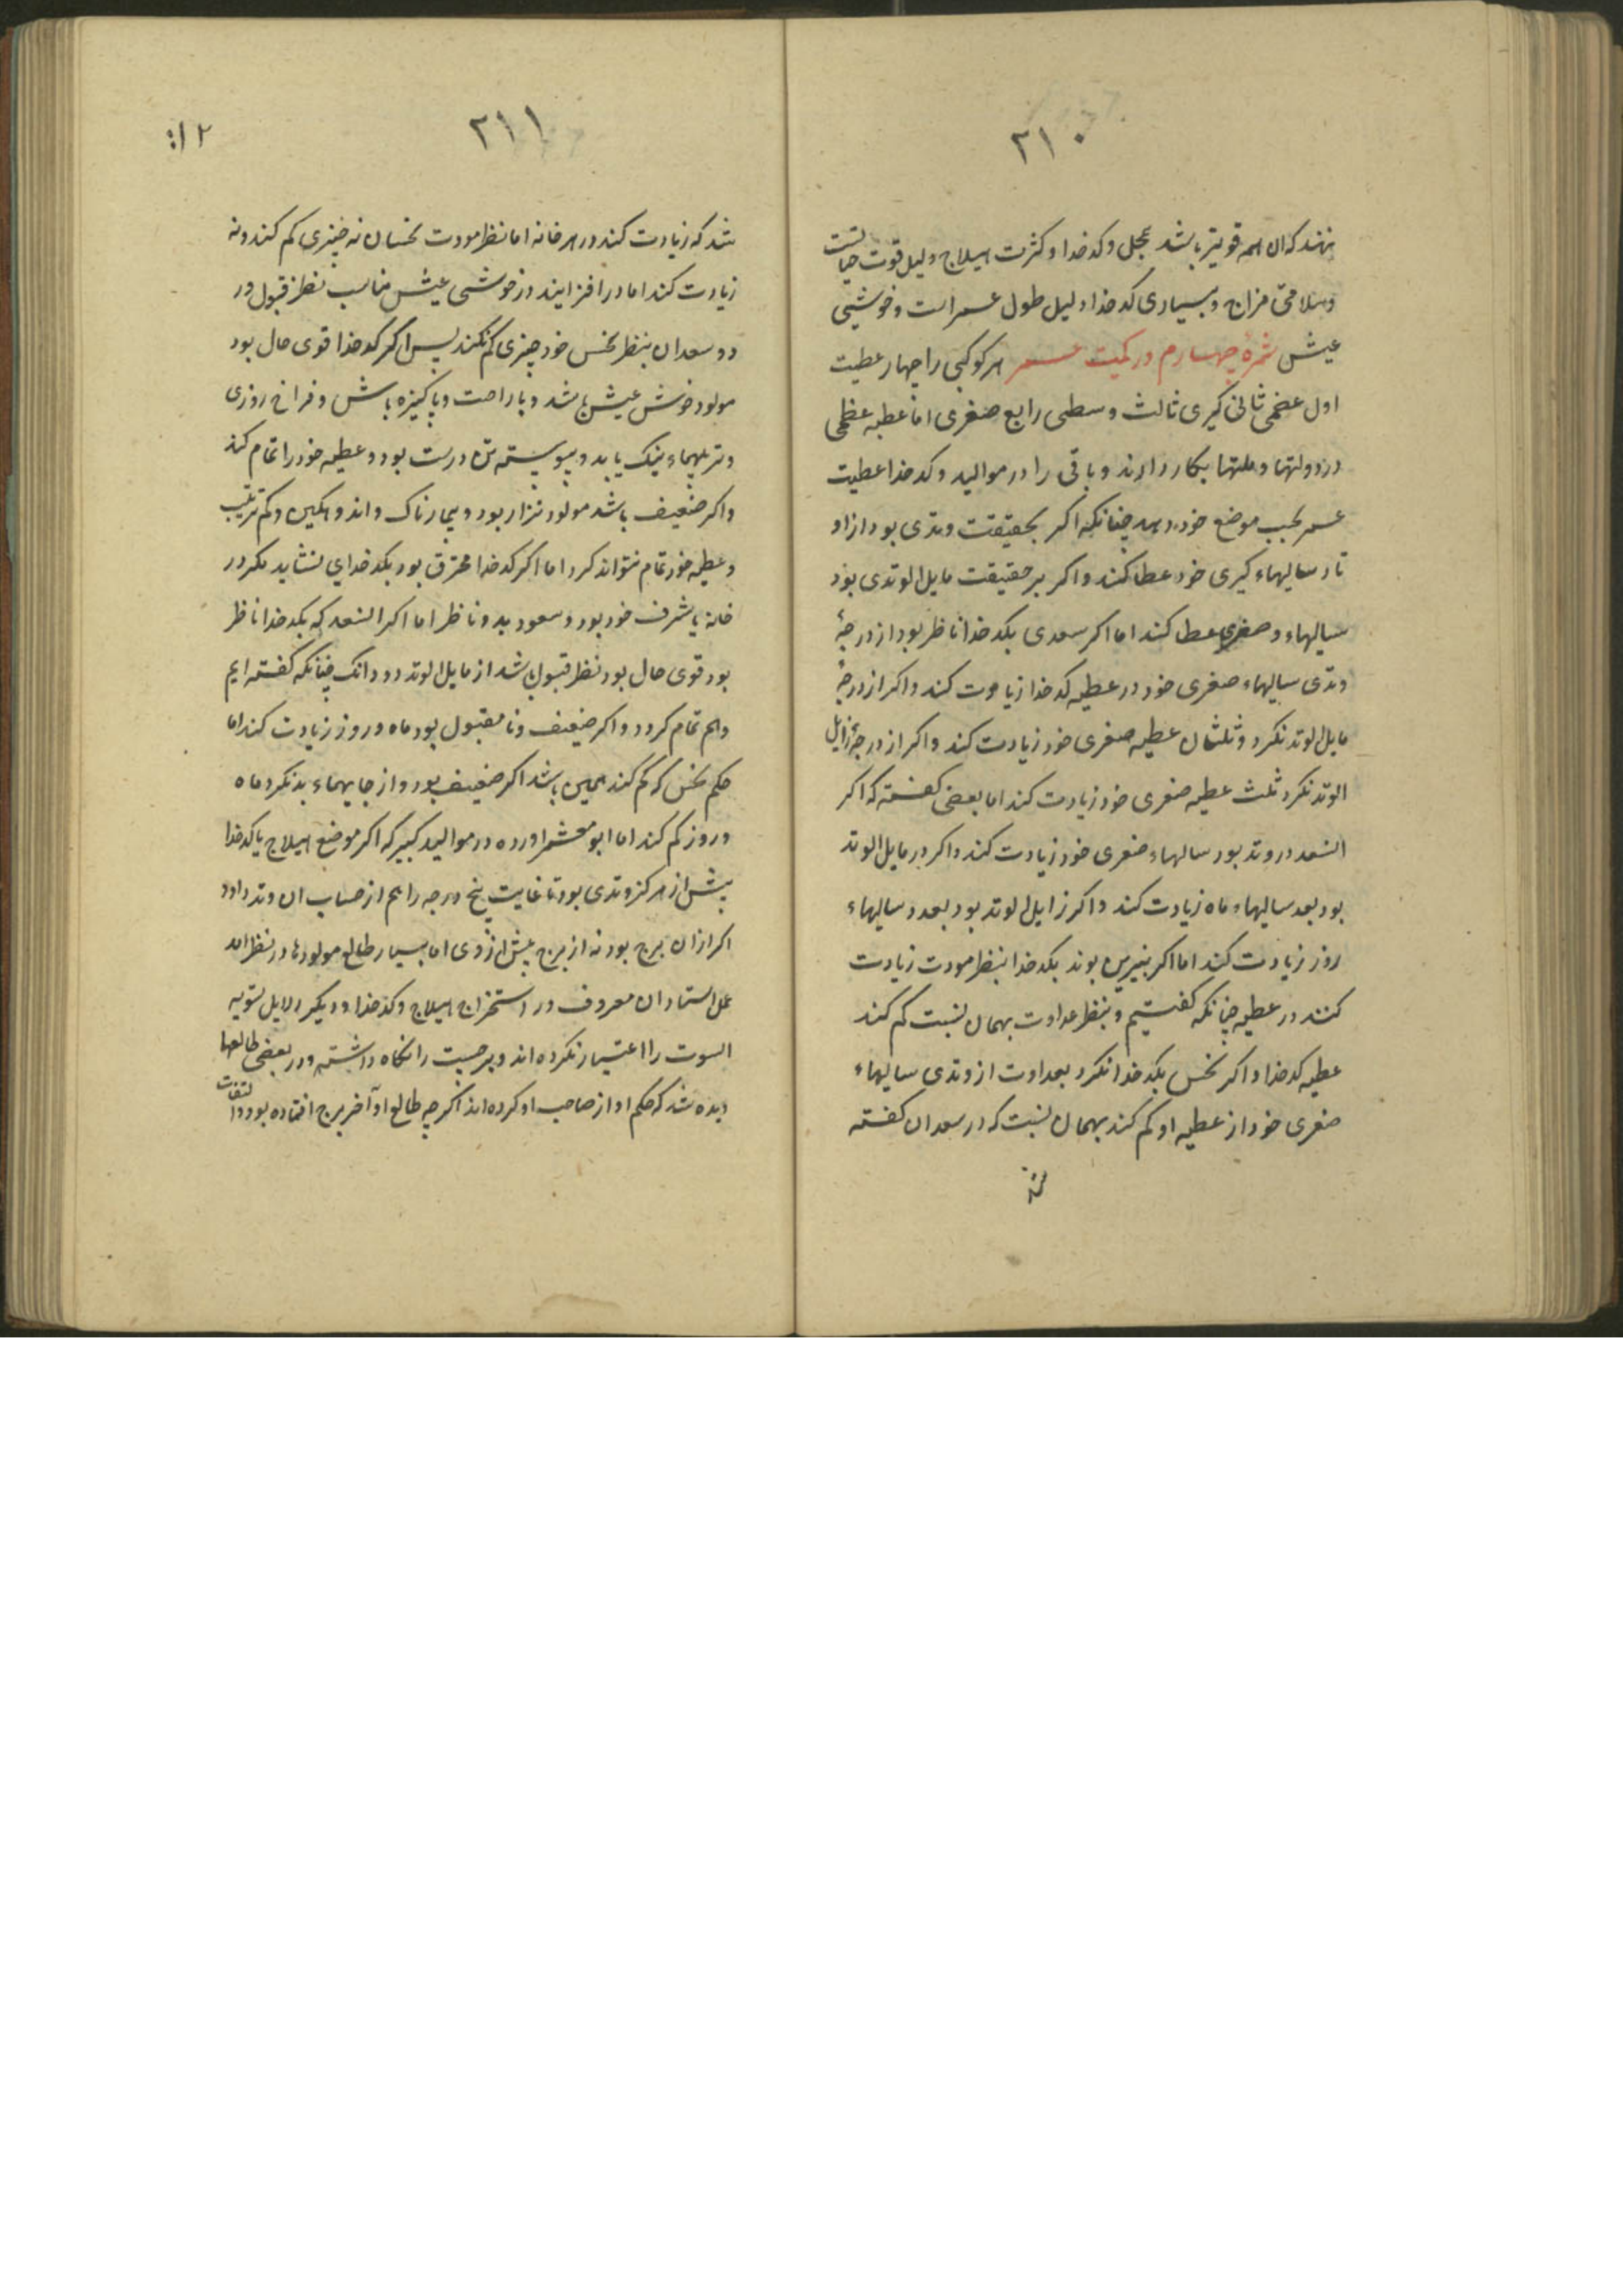 ۲۱۰
نهند که ان همه قویتر باشد بمحل و کدخدا و کثرت هیلاج دلیل قوت حیاتست
وسلامتی مزاج و بسیاری کدخدا دلیل طول عمر است و خوشی
عیش ثمرهٔ چهارم در کمیت عمر هر کوکبی را چهار عطیت
اول عضمی ثانی کبری ثالث وسطی رابع صغری اما عطیه عظمی
در دولتها و ملتها بکار دارند و باقی را در موالید و کدخدا عطیت
عمر بحسب موضع خود دهد چنانکه اکر بحقیقت وتدی بود از او
تاد سالهاء کبری خود عطا کند و اکر بر حقیقت مایل الوتدی بود
سالهاء وصغری عطا کند اما اکر سعدی بکدخدا ناظر بود از درجهٔ
وتدی سالهاء صغری خود در عطیه کدخدا زیادت کند و اکر از درجهٔ
مایل الوتد نکرد و ثلثان عطیه صغری خود زیادت کند و اکر از درجهٔ زایل
الوتد نکرد ثلث عطیه صغری خود زیادت کند اما بعضی کفته که اکر
السعد در وتد بود سالهاء صغری خود زیادت کند و اکر در مایل الوتد
بود بعد سالهاء ماه زیادت کند و اکر زایل الوتد بود بعدد سالهاء
روز زیادت کند اما اکر نیرین بوند بکدخدا بنظر مودت زیادت
کنند در عطیه چنانکه کفتیم و بنظر عداوت بهمان نسبت کم کند
عطیه کدخدا و اکر نحس بکدخدا نکرد بعداوت از وتدی سالهاء
صغری خود از عطیه او کم کند بهمان نسبت که در سعدان کفته
۲۱۱
۲۱۲
شد که زیادت کند در هر خانه اما نظر مودت نحسان نه چیزی کم کند و نه
زیادت کند اما در افزایند در خوشی عیش مناسب نظر قبول و ر
دو سعدان بنظر نحس خود چیزی کم نکند پس اکر کدخدا قوی حال بود
مولود خوش عیش باشد و با راحت و پاکیزه باش و فراخ روزی
و تربیتهاء نیک یابد و پیوسته تن درست بود و عطیه خود را تمام کند
و اکر ضعیف باشد مولود نزار بود و بیمارناک و اندوهکین و کم تربیت
و عطیه خود تمام نتواند کرد اما اکر کدخدا محترق بود بکدخدایی نشاید مکر در
خانه یا شرف خود بود و سعود بدو ناظر اما اکر السعد که بکدخدا ناظر
بود قوی حال بود نظر قبول باشد از مایل الوتد دو دانک چنانکه کفته ایم
و هم تمام کردد و اکر ضعیف و نا مقبول بود ماه و روز زیادت کند اما
حکم نحس که کم کند همین باشد اکر ضعیف بود و از جایهاء بد نکرد ماه
و روز کم کند اما ابو معشر اورده در موالید کبیر که اکر موضع هیلاج یا کدخدا
پیش از مرکز وتدی بود تا غایت پنج درجه را هم از حساب ان وتد دارد
اکر ازان برج بود نه از برج پیش از وی اما بسیار طالع مولودها در نظر امد
عمل استادان معروف در استخراج هیلاج و کدخدا و دیکر دلایل تسویه
البیوت را اعتبار نکرده اند و برحسبت را نکاه داشته و در بعضی طالعها
دیده شد که حکم او از صاحب او کرده اند اکر چه طالع او آخر برج افتاده بود و التفات